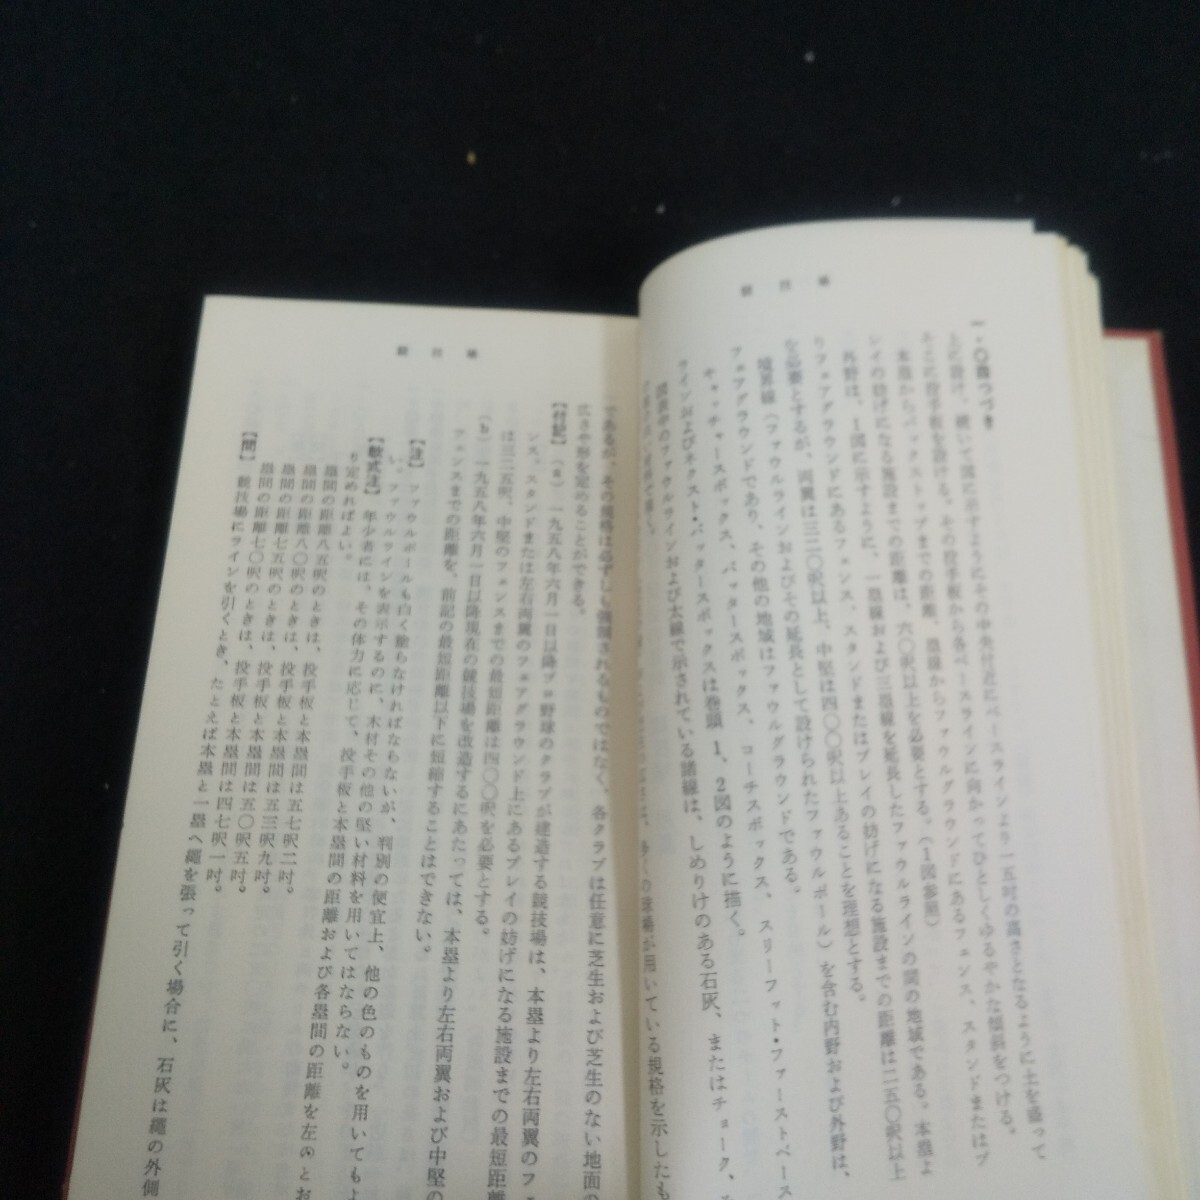 競技場
一・〇四つづき
上に設け、続いて図に示すようにその中央付近にベースラインより一五吋の高さとなるように土を盛って
そこに投手板を設ける。その投手板から各ベースラインに向かってひとしくゆるやかな傾斜をつける。
本塁からバックストップまでの距離、塁線からファウルグラウンドにあるフェンス、スタンドまたはプ
レイの妨げになる施設までの距離は、六〇呎以上を必要とする。(1図参照)
外野は、1図に示すように、一塁線および三塁線を延長したファウルラインの間の地域である。本塁よ
りフェアグラウンドにあるフェンス、スタンドまたはプレイの妨げになる施設までの距離は二五〇呎以上
を必要とするが、両翼は三二〇呎以上、中堅は四〇〇呎以上あることを理想とする。
境界線(ファウルラインおよびその延長として設けられたファウルポール)を含む内野および外野は、
フェアグラウンドであり、その他の地域はファウルグラウンドである。
キャッチャースボックス、バッタースボックス、コーチスボックス、スリーフット・ファーストベース
ラインおよびネクスト・バッタースボックスは巻頭1、2図のように描く。
図表中のファウルラインおよび太線で示されている諸線は、しめりけのある石灰、またはチョーク、
多くの球場が用いている規格を示したも
競技場
であるが、その規格は必ずしも強制されるものではなく、各クラブは任意に芝生および芝生のない地面の
広さや形を定めることができる。
【付記】(a) 一九五八年六月一日以降プロ野球のクラブが建造する競技場は、本塁より左右両翼のフェ
ンス、スタンドまたは左右両翼のフェアグラウンド上にあるプレイの妨げになる施設までの最短距離
は三二五呎、中堅のフェンスまでの最短距離は四〇〇呎を必要とする。
(b) 一九五八年六月一日以降現在の競技場を改造するにあたっては、本塁より左右両翼および中堅の
フェンスまでの距離を、前記の最短距離以下に短縮することはできない。
【注】 ファウルポールも白く塗らなければならないが、判別の便宜上、他の色のものを用いてもよ
い。ファウルラインを表示するのに、木材その他の堅い材料を用いてはならない。
【軟式注】 年少者には、その体力に応じて、投手板と本塁間の距離および各塁間の距離を左のとお
り定めればよい。
塁間の距離八五呎のときは、投手板と本塁間は五七呎二吋。
塁間の距離八〇呎のときは、投手板と本塁間は五三呎九吋。
塁間の距離七五呎のときは、投手板と本塁間は五〇呎五吋。
塁間の距離七〇呎のときは、投手板と本塁間は四七呎一吋。
【問】 競技場にラインを引くとき、たとえば本塁と一塁へ縄を張って引く場合に、石灰は縄の外側